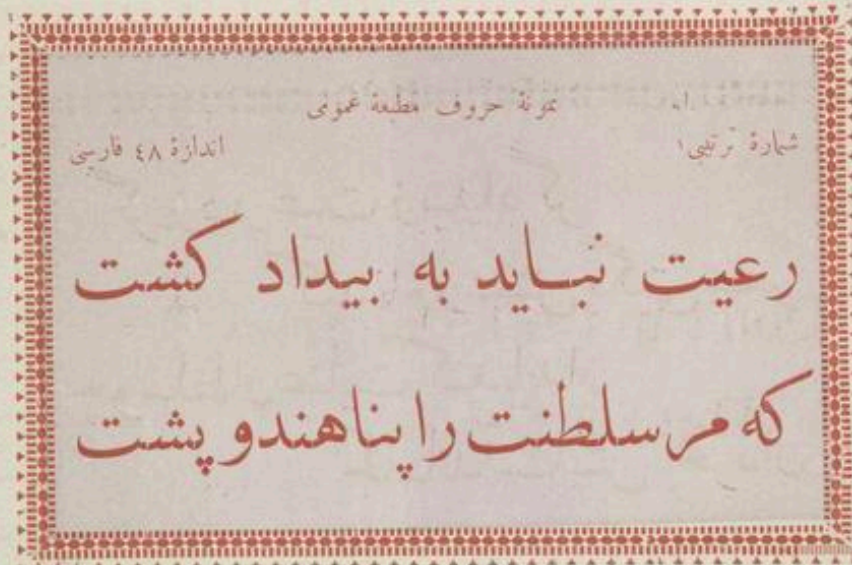 نمونهٔ حروف مطبعهٔ عمومی
شمارهٔ ترتیبی ۱
اندازهٔ ۴۸ فارسی
رعیت نباید به بیداد کشت
که مر سلطنت را پناهند و پشت